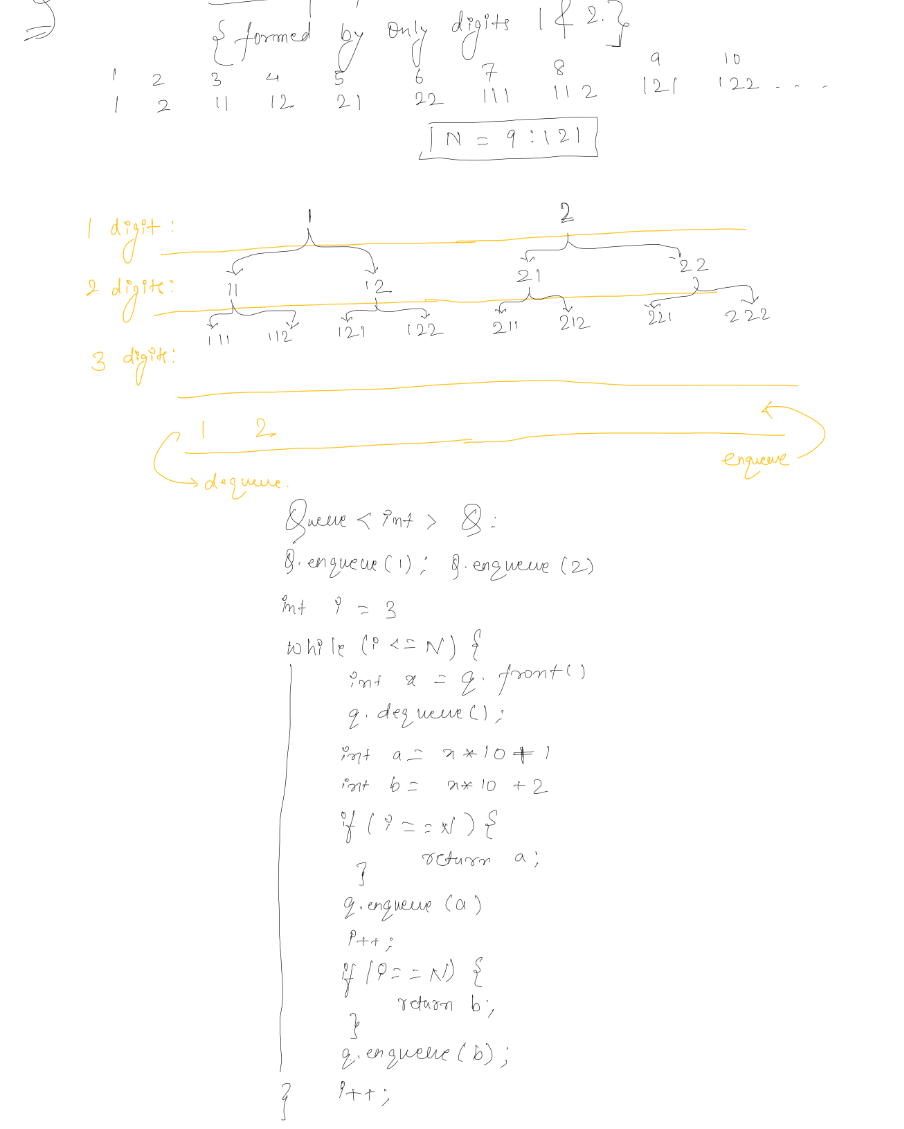 { formed by only digits 1 & 2. }
1 2 3 4 5 6 7 8 9 10
1 2 11 12 21 22 111 112 121 122 ....
N = 9 : 121
1 digit : 1 2
2 digits: 11 12 21 22
111 112 121 122 211 212 221 222
3 digits:
1 2
enqueue
dequeue.
Queue < int > Q :
Q.enqueue(1); Q.enqueue (2)
int i = 3
while (i <= N) {
int x = q. front()
q. dequeue();
int a = x*10+1
int b = x*10 +2
if ( i == N ) {
return a;
}
q.enqueue (a)
i++;
if (i == N) {
return b;
}
q.enqueue(b);
} i++;